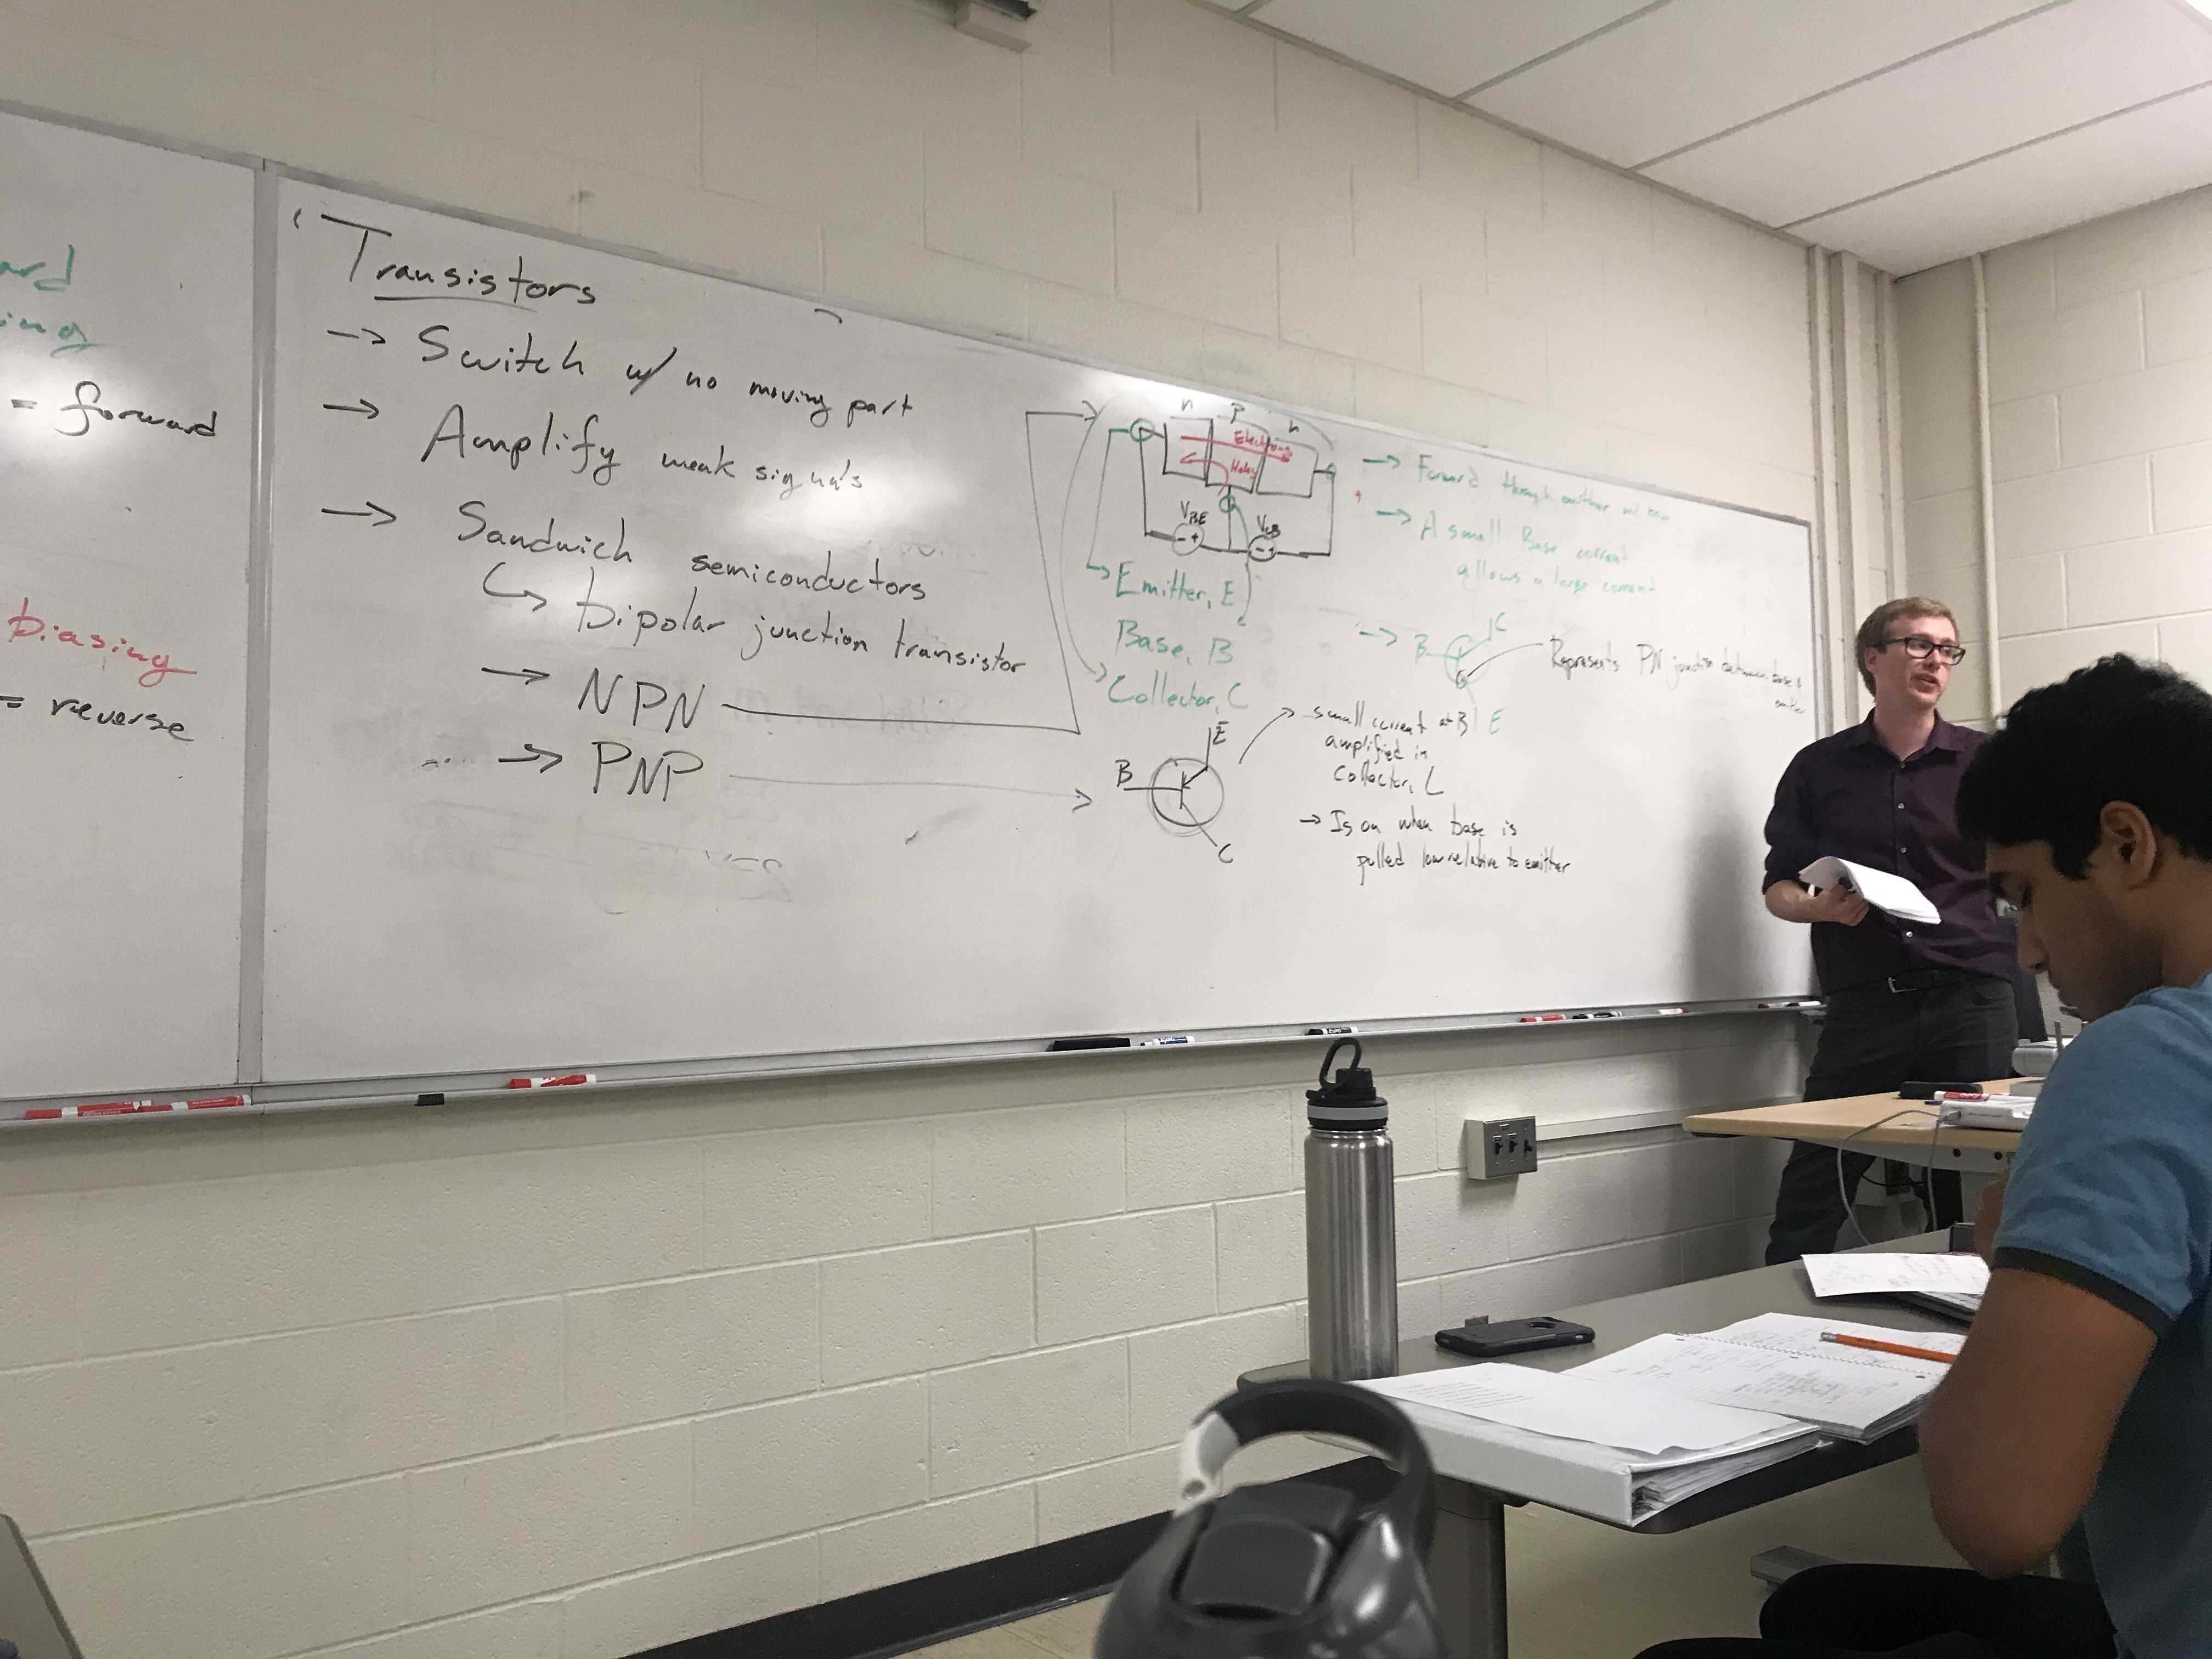 ard
ing
= forward
biasing
= reverse
Transistors
→ Switch w/ no moving part
→ Amplify weak signals
→ Sandwich semiconductors
↳ bipolar junction transistor
→ NPN
→ PNP
n p n
Electrons
Holes
VBE VCB
- + - +
Emitter, E
Base, B
Collector, C
→ Forward through emitter and base
→ A small Base current
allows a large current
→ B C
E
Represents PN junction between base &
emitter
B E
C
→ small current at B
amplified in
Collector, C
→ Is on when base is
pulled low relative to emitter